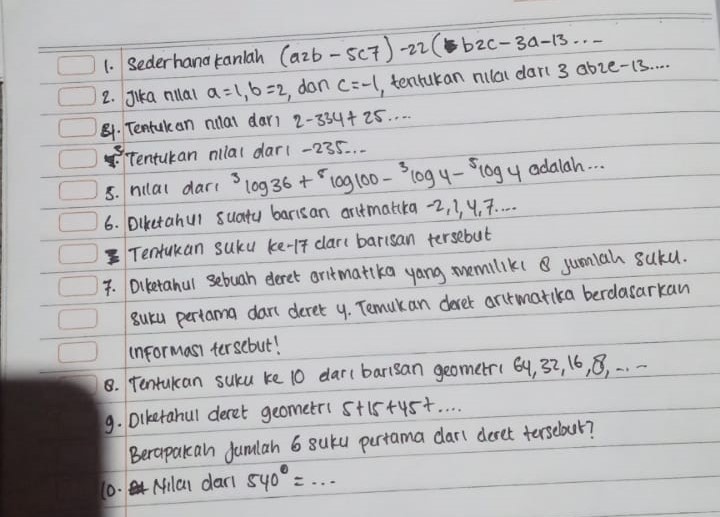 1. Sederhanakanlah (a2b - 5c7) -22( b2c - 3a - 13 ...
2. Jika nilai a=1, b=2, dan c=-1, tentukan nilai dari 3 ab2c-13....
Tentukan nilai dari 2-334+ 25....
Tentukan nilai dari -235...
5. nilai dari ³log36 + ⁵log100 - ³log 4 - ⁵log 4 adalah...
6. Diketahui suatu barisan aritmatika -2,1,4,7....
Tentukan suku ke-17 dari barisan tersebut
7. Diketahui sebuah deret aritmatika yang memiliki 8 jumlah suku.
suku pertama dari deret 4. Temukan deret aritmatika berdasarkan
informasi tersebut!
8. Tentukan suku ke 10 dari barisan geometri 64, 32, 16, 8, ...
9. Diketahui deret geometri 5+15+45+....
Berapakah jumlah 6 suku pertama dari deret tersebut?
10. Nilai dari 540° = ...